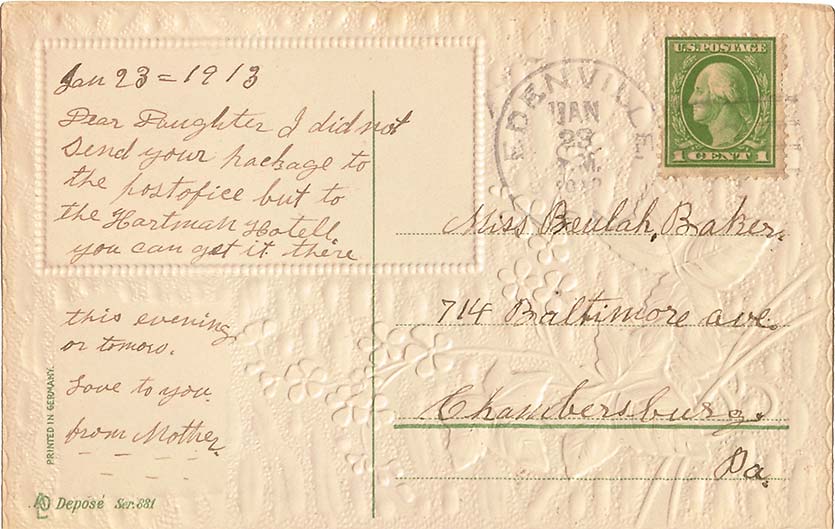 Jan 23 = 1913
Dear Daughter I did not
send your package to
the postofice but to
the Hartman Hotell.
you can get it there
this evening
or tomow.
Love to you.
from Mother.
PRINTED IN GERMANY.
Deposé Ser. 681
EDENVILLE
JAN
23
U.S. POSTAGE
1 CENT 1
Miss Beulah, Baker.
714 Baltimore ave.
Chambersburg.
Pa.